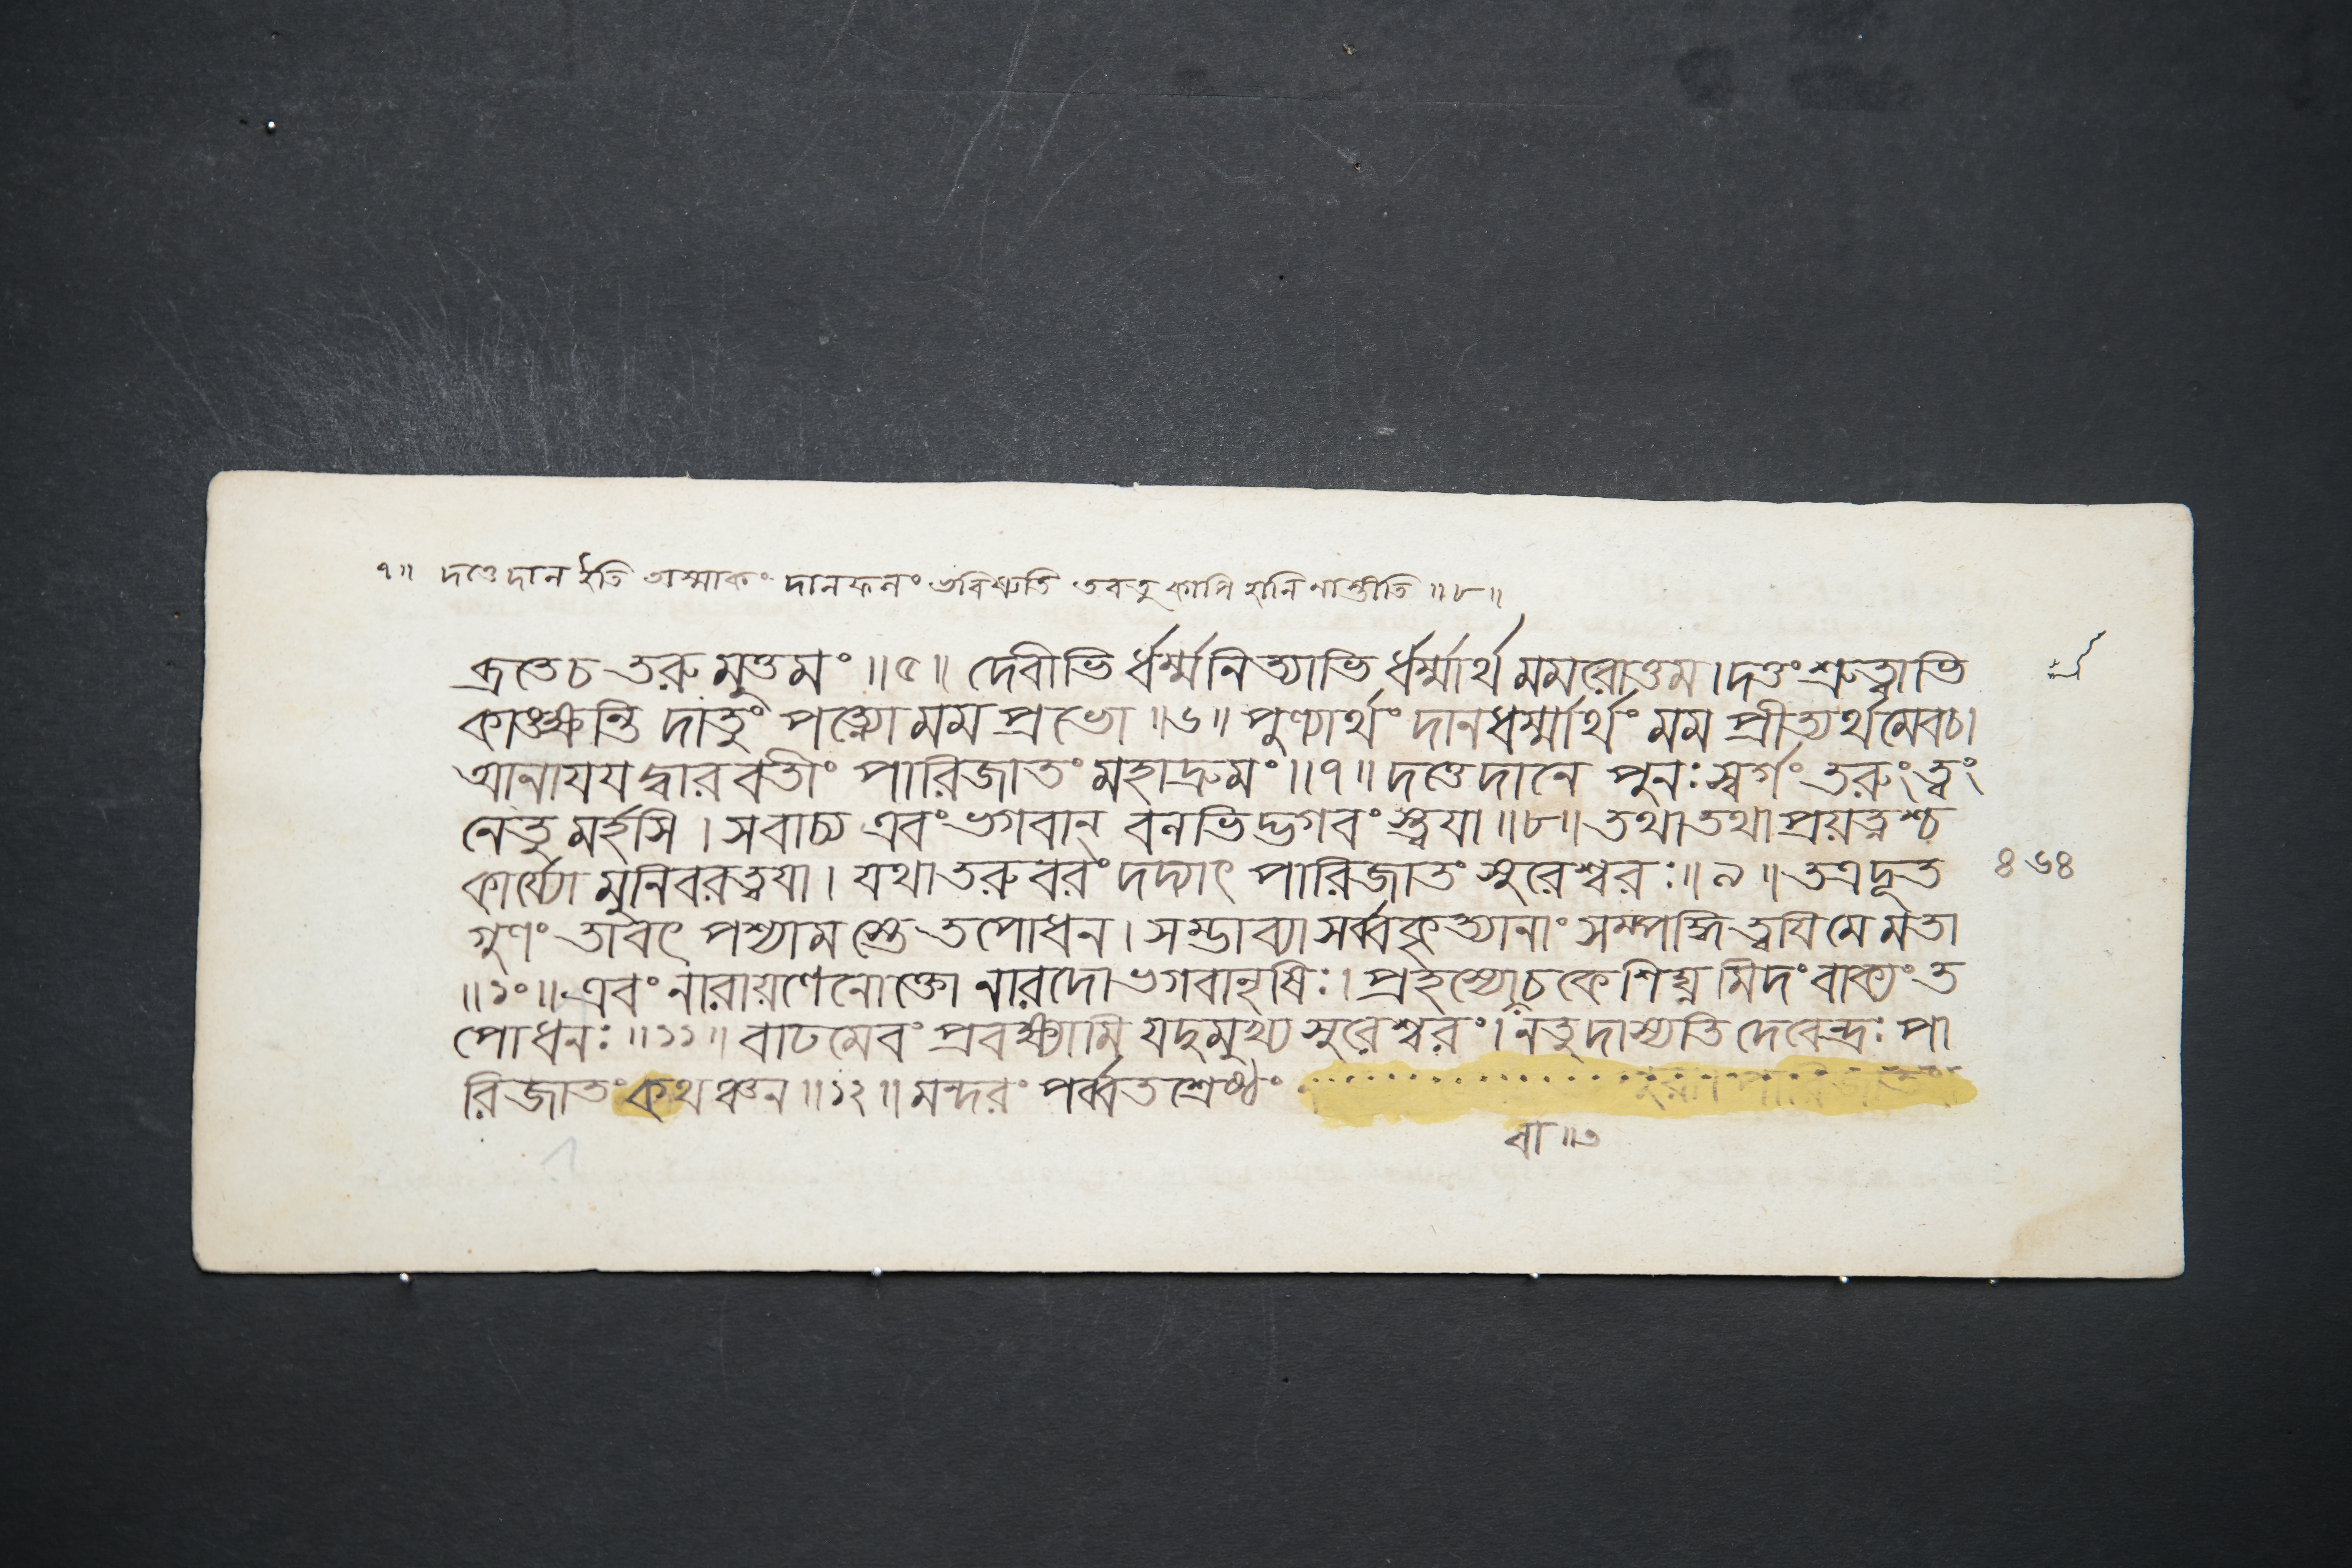 ৭॥ দত্তে দান ইতি অস্মাকং দানফলং ভবিষ্যতি তবতু কাপি হানি নাস্তীতি ॥৮॥
দ্রতে চ তরুমুত্তমং ॥৫॥ দেবীভি র্ধর্ম্মনিত্যাভি র্ধর্ম্মার্থ মমরোত্তম । দত্তং শ্রুত্বাভি
কাঙ্ক্ষন্তি দাতুং পত্ন্যো মম প্রভো ॥৬॥ পুণ্যার্থং দানধর্ম্মার্থং মম প্রীত্যর্থমেবচ।
আনাযয দ্বারবতীং পারিজাতং মহাদ্রুমং ॥৭॥ দত্তে দানে পুনঃ স্বর্গং তরুং ত্বং
নেতু মর্হসি । সবাচ্য এবং ভগবান্ বলভিদ্ভগবং স্ত্বযা ॥৮॥ তথা তথা প্রয়ত্নশ্চ
কার্য্যো মুনিবরত্বযা । যথা তরুবরং দদ্যাৎ পারিজাতং সুরেশ্বরঃ ॥৯॥ তত্রদূত
৪৬৪
গুণং তাবৎ পশ্যামস্তে তপোধন । সম্ভাব্যা সর্ব্বকৃত্যানাং সম্পদ্ধি ত্বযি মে মতা
॥১০॥ এবং নারায়ণেনোক্তো নারদো ভগবানৃষিঃ । প্রহস্যোচ কেশিঘ্নমিদং বাক্যং ত
পোধনঃ ॥১১॥ বাঢমেবং প্রবক্ষ্যামি যদুমুখ্য সুরেশ্বরং । নতু দাস্যতি দেবেন্দ্রঃ পা
রিজাতং কথঞ্চন ॥১২॥ মন্দরং পর্ব্বতশ্রেষ্ঠং
বা ॥৩